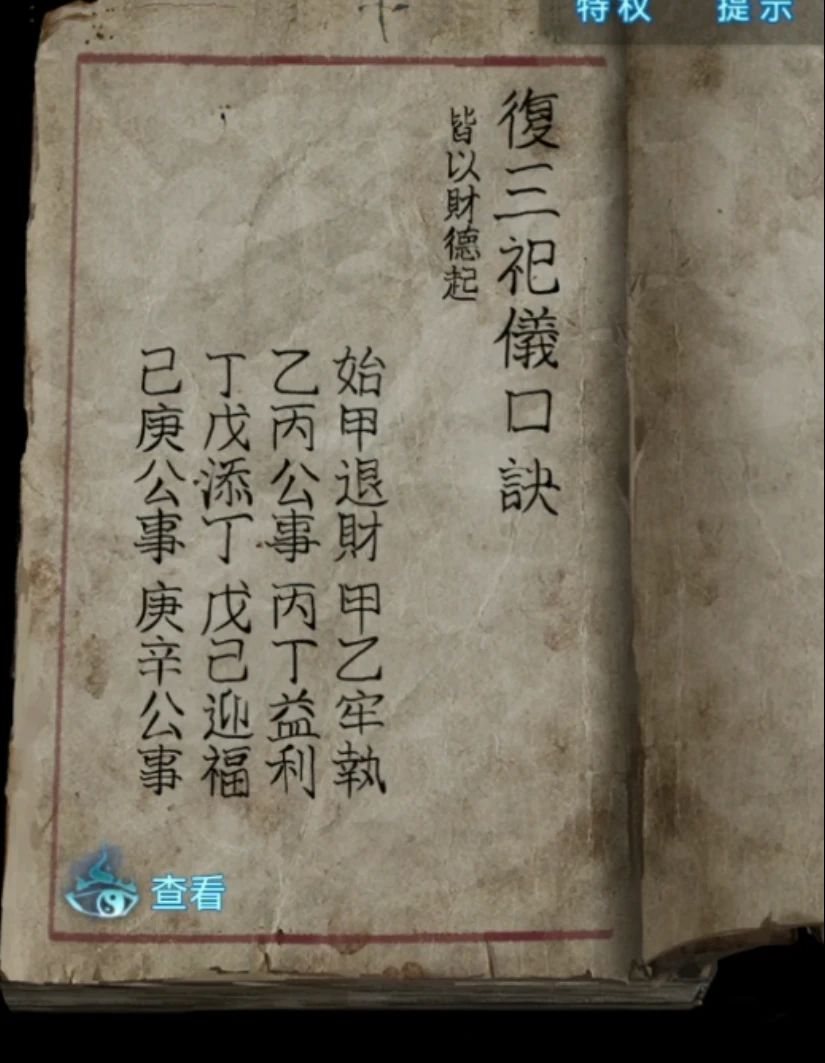 特权
提示
復三祀儀口訣
皆以財德起
始甲退財 甲乙牢執
乙丙公事 丙丁益利
丁戊添丁 戊己迎福
己庚公事 庚辛公事
查看